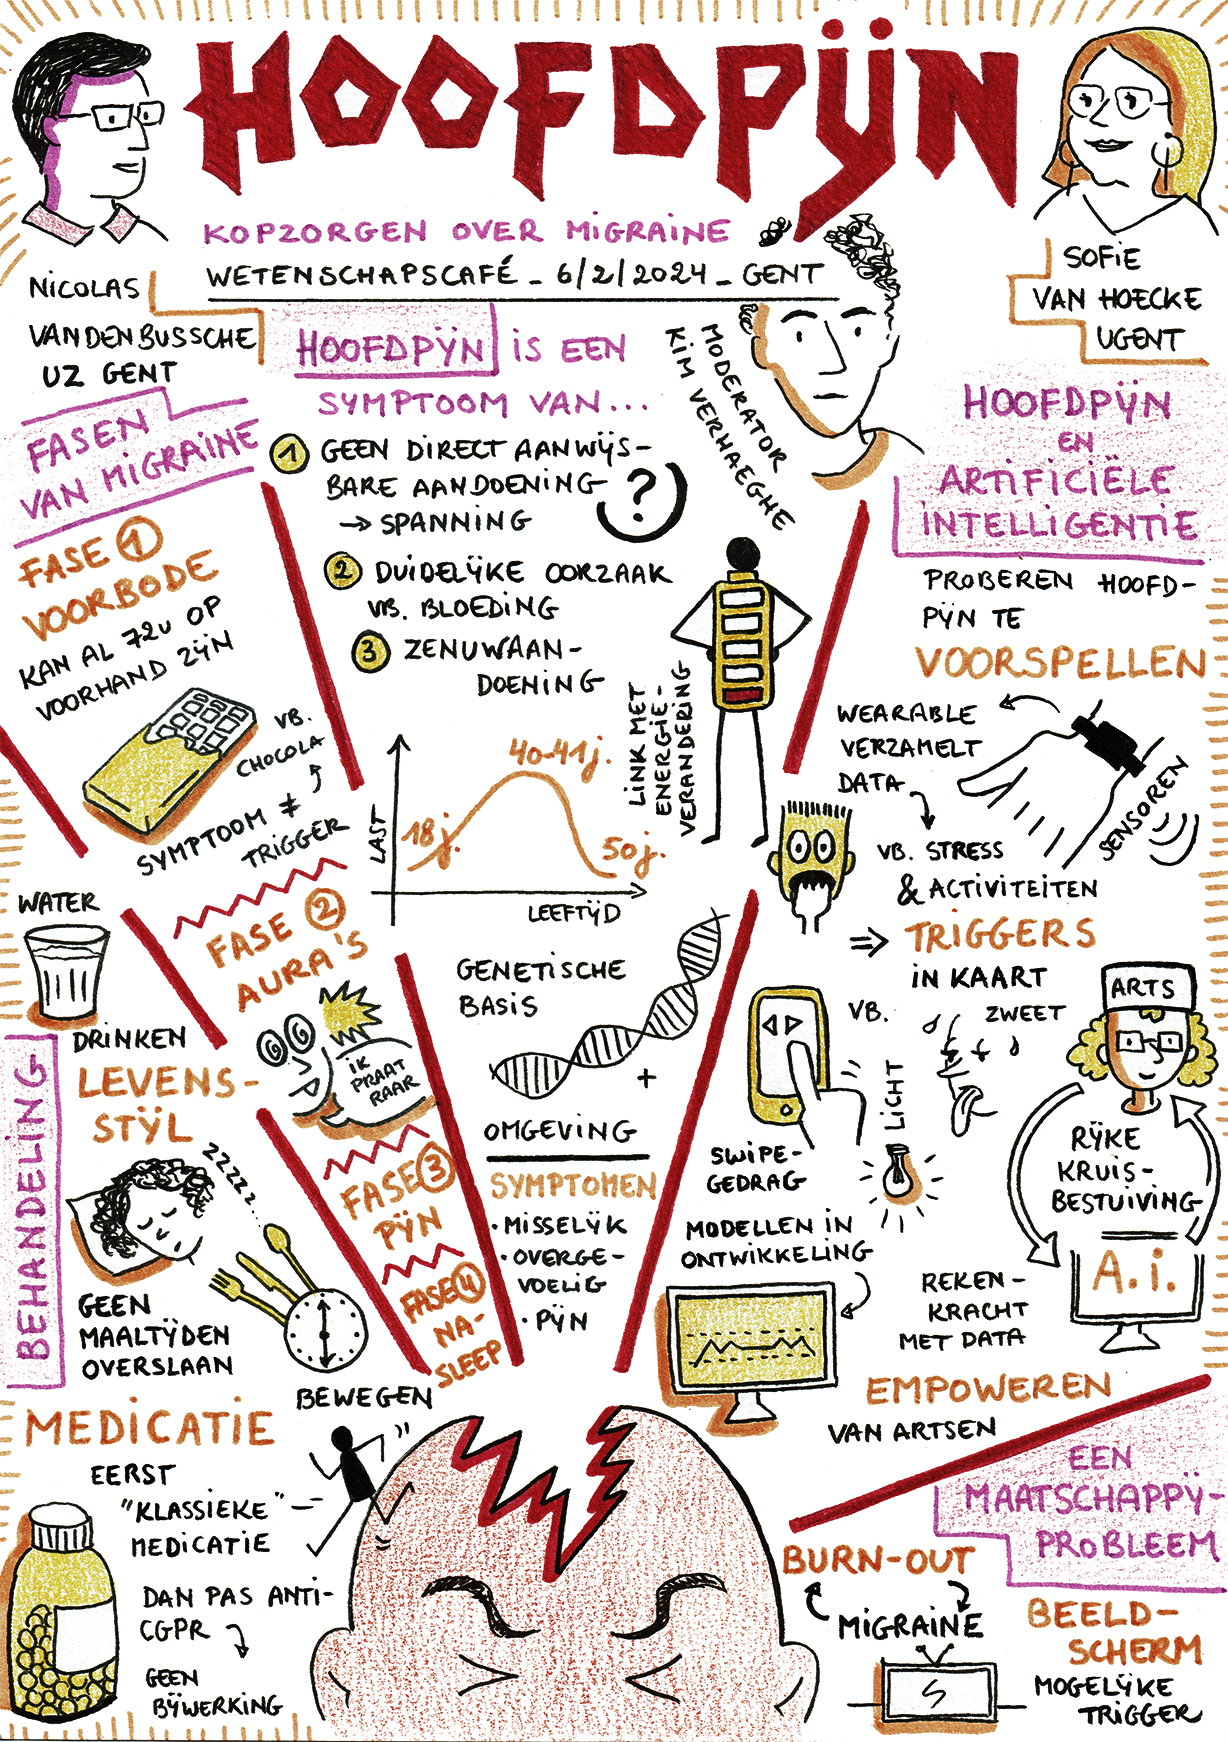 HOOFDPŸN
KOPZORGEN OVER MIGRAINE
WETENSCHAPSCAFÉ - 6/2/2024 - GENT
NICOLAS
VANDENBUSSCHE
UZ GENT
SOFIE
VAN HOECKE
UGENT
MODERATOR
KIM VERHAEGHE
HOOFDPŸN IS EEN
SYMPTOOM VAN...
1 GEEN DIRECT AANWŸS-
BARE AANDOENING
→ SPANNING
?
2 DUIDELŸKE OORZAAK
VB. BLOEDING
3 ZENUWAAN-
DOENING
LINK MET
ENERGIE-
VERANDERING
LAST
18 j.
40-41 j.
50 j.
LEEFTŸD
GENETISCHE
BASIS
+
OMGEVING
SYMPTOMEN
· MISSELŸK
· OVERGE-
VOELIG
· PŸN
FASEN
VAN MIGRAINE
FASE 1
VOORBODE
KAN AL 72U OP
VOORHAND ZŸN
VB.
CHOCOLA
SYMPTOOM ≠
TRIGGER
FASE 2
AURA'S
IK
PRAAT
RAAR
FASE 3
PŸN
FASE 4
NA-
SLEEP
BEHANDELING
WATER
DRINKEN
LEVENS-
STŸL
ZZZZZ...
GEEN
MAALTŸDEN
OVERSLAAN
BEWEGEN
MEDICATIE
EERST
"KLASSIEKE"
MEDICATIE
DAN PAS ANTI-
CGPR
GEEN
BŸWERKING
HOOFDPŸN
EN
ARTIFICIËLE
INTELLIGENTIE
PROBEREN HOOFD-
PŸN TE
VOORSPELLEN
WEARABLE
VERZAMELT
DATA
SENSOREN
VB. STRESS
& ACTIVITEITEN
⇒ TRIGGERS
IN KAART
VB.
ZWEET
LICHT
SWIPE-
GEDRAG
MODELLEN IN
ONTWIKKELING
ARTS
RŸKE
KRUIS-
BESTUIVING
A.i.
REKEN-
KRACHT
MET DATA
EMPOWEREN
VAN ARTSEN
EEN
MAATSCHAPPŸ-
PROBLEEM
BURN-OUT
MIGRAINE
BEELD-
SCHERM
MOGELŸKE
TRIGGER